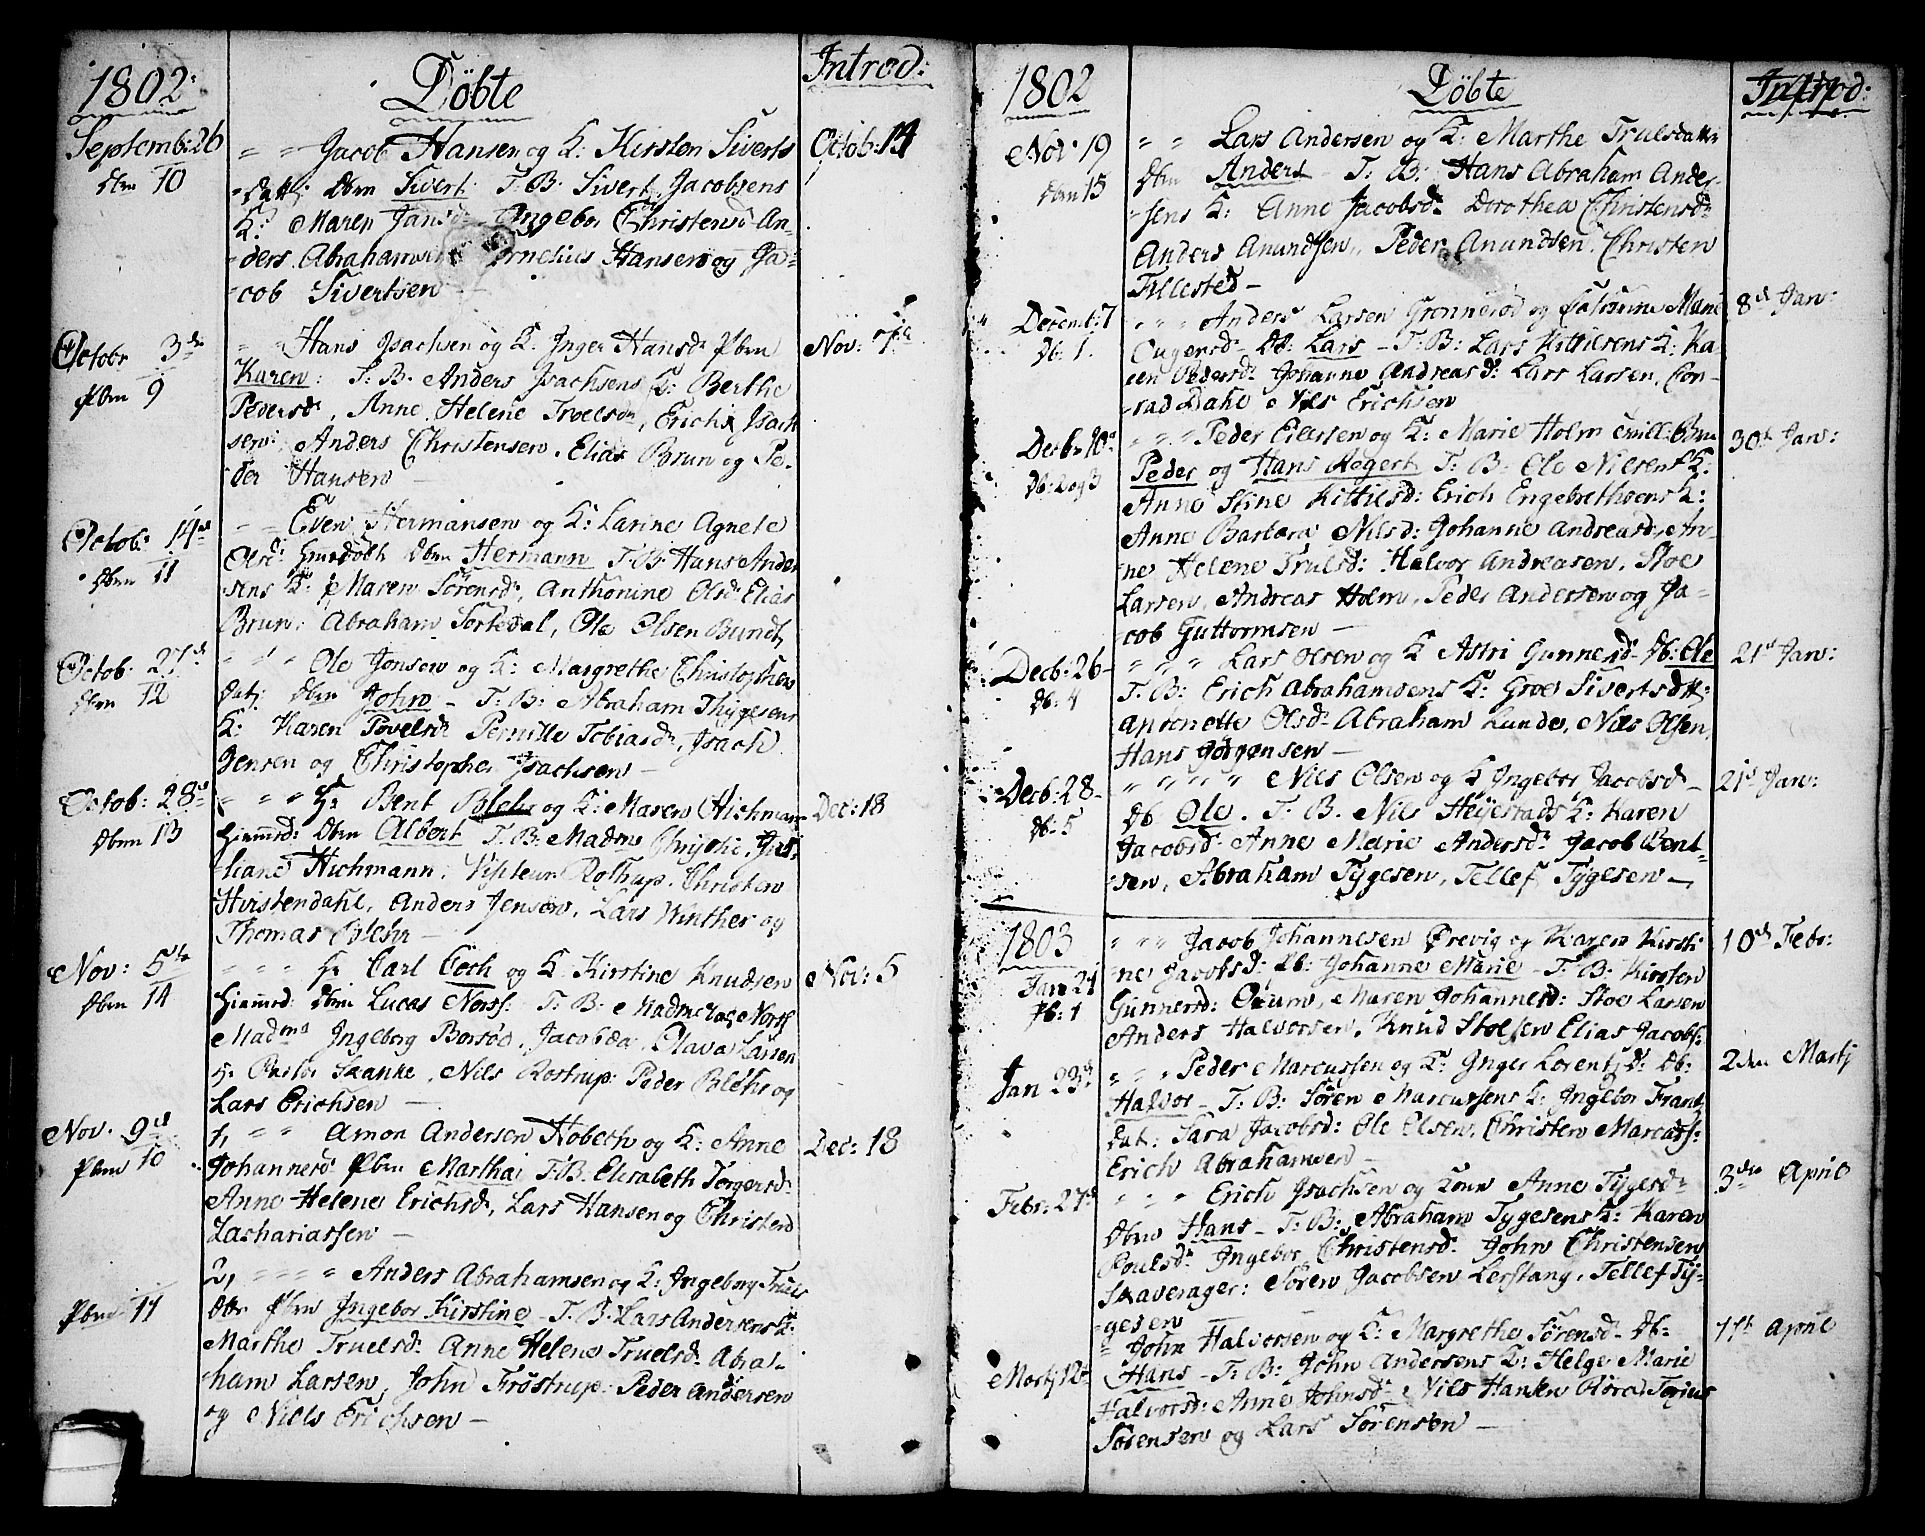 1802.
Döbte
Introd:
Septemb: 26
Dbm 10
" " Jacob Hansen og K: Kirsten Siverts
Datt: Dbm Sivert. T. B. Sivert Jacobsens
K: Maren Jansd. Ingebor Christensd An-
ders Abrahamsen Cornelius Hansen og Ja-
cob Sivertsen
Octob: 14
Octobr 3de
Pbm 9
" " Hans Isachsen og K. Inger Hansd. Pbm
Karen: T. B. Anders Isachsens K: Berthe
Pedersd., Anne Helene Troelsdr, Erich Isach
sen: Anders Christensen. Elias Brun og Pe-
der Hansen —
Nov: 7de
Octob. 14de
Dbm 11
" " Even Hermansen og K: Larine Agnete
Olsd: Dbm Hermann T. B. Hans Ander
sens K: Maren Sörensd., Anthonine Olsd. Elias
Brun, Abraham Sortedal, Ole Olsen Bundt,
Octob. 27de
Dbm 12
" " " Ole Jonsen og K: Margrethe Christophers
Datt: Dbm John — T: B: Abraham Thygesens
K: Karen Povelsd. Pernille Tobiasd., Isach
Jensen og Christopher Isachsen —
Octob: 28de
Dbm 13
" " " Hr Bent Blehr og K: Maren Hichmann
Hiemd: Dbm Albert T. B: Madm Juli-
liane Hichmann, Rostrup. Christen
Hirstendahl, Anders Jensen, Lars Winther og
Thomas Blehr —
Dec: 18
Nov: 5te
Dbm 14
" " " Hr Carl Coch og K Kirstine Knudsen
Hiemd: Dbm Lucas T: B: Madme
Madma Ingeborg Borsöe, Jacobda Olava Larsen
Hr Pastor Skanke, Nils Rostrup. Peder Blehr og
Lars Erichsen —
Nov: 5
Nov. 9de
Pbm 10
1, " " Amon Andersen Hobeth og K: Anne
Johannesd. Pbm Martha T. B. Elisabeth Torgersd.
Anne Helene Erichsd., Lars Hansen og Christen
Zachariassen —
Dec: 18
Pbm 11
2, " " " Anders Abrahamsen og K: Ingeborg Truls
Dtr Pbm Ingebor Kirstine — T. B: Lars Andersens K.
Marthe Truelsd. Anne Helene Truelsd. Abra-
ham Larsen, John Fröstrup. Peder Andersen
og Niels Erichsen —
1802
Döbte
Introd:
Nov 19
Dbm 15
" " Lars Andersen og K: Marthe Trulsdattr
Dbm Anders — T. B: Hans Abraham Ander-
sens K: Anne Jacobsd. Dorothea Christensd.
Anders Anundsen, Peder Anundsen, Christen
Tillested —
Decemb: 7
Db. 1.
" " " Anders Larsen Grønneröd og Marie
Ougensd. Db. Lars — T. B: Lars Kittilsens K: Ka-
ren Pedersd. Johanne Andreasd: Lars Larsen, Con-
rad Dahl Nils Erichsen
8de Jan:
Decb: 10de
Db: 2 og 3
" " " Peder Eilersen og K: Marie Holm
Peder og Hans Aegert T. B: Ole Nilsens K:
Anne Stine Kittilsd: Erich Engebrethsens K:
Anne Barbara Nilsd: Johanne Andreasd. An-
ne Helene Trulsd: Halvor Andreasen, Stoe
Larsen, Andreas Holm, Peder Andersen og Ja-
cob Guttormsen —
30te Jan:
Decb: 26
Db: 4
" " " Lars Olsen og K Astri Gunnersd. Db: Ole
T. B: Erich Abrahamsens K: Groe Sivertsdtt:
Antonette Olsd. Abraham Lunde, Nils Olsen,
Hans Jörgensen —
21de Jan:
Decb: 28
Db: 5
" " " " Nils Olsen og K Ingebor Jacobsd
Db Ole. T. B. Nils Heijestads K: Karen
Jacobsd. Anne Marie Andersd. Jacob Bent-
sen, Abraham Tygesen, Tellef Tygesen —
21de Jan:
1803
Jan 21
Pb: 1
" " " Jacob Johannesen Ørevig og Karen Kirsti-
ne Jacobsd: Pb: Johanne Marie — T. B: Kirsten
Gunnersd: Maren Johannesd: Stoe Larsen
Anders Halvorsen, Knud Stolsen Elias Jacobs:
10de Febr:
Jan 23de
" " " Peder Marcussen og K: Inger Lorentzd: Db:
Halvor — T: B: Sören Marcussens K: Ingebor Frants
Dat: Sara Jacobsd: Ole Olsen, Christen Marcuss:
Erich Abrahamsen —
2den Martj
Febr: 27de
" " " Erich Isachsen og Anne Tygesd.
Dbm Hans — T. B: Abraham Tygesens K: Karen
Poulsd. Ingebor Christensd. John Christensen
Skaverager: Sören Jacobsen Lerstang, Tellef Ty-
gesen —
3die April
Martj 12te
" John Halvorsen og K: Margrethe Sörensd. Db:
Hans — T. B: John Andersens K: Helge Marie
Halvorsd: Anne Johnsd. Nils Hansen Torjus
Sörensen og Lars Sörensen —
11te April